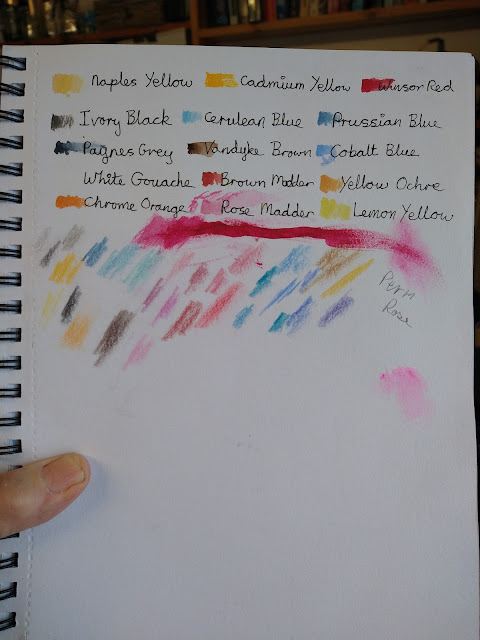 Naples Yellow Cadmium Yellow Winsor Red
Ivory Black Cerulean Blue Prussian Blue
Paynes Grey Vandyke Brown Cobalt Blue
White Gouache Brown Madder Yellow Ochre
Chrome Orange Rose Madder Lemon Yellow
Perm
Rose